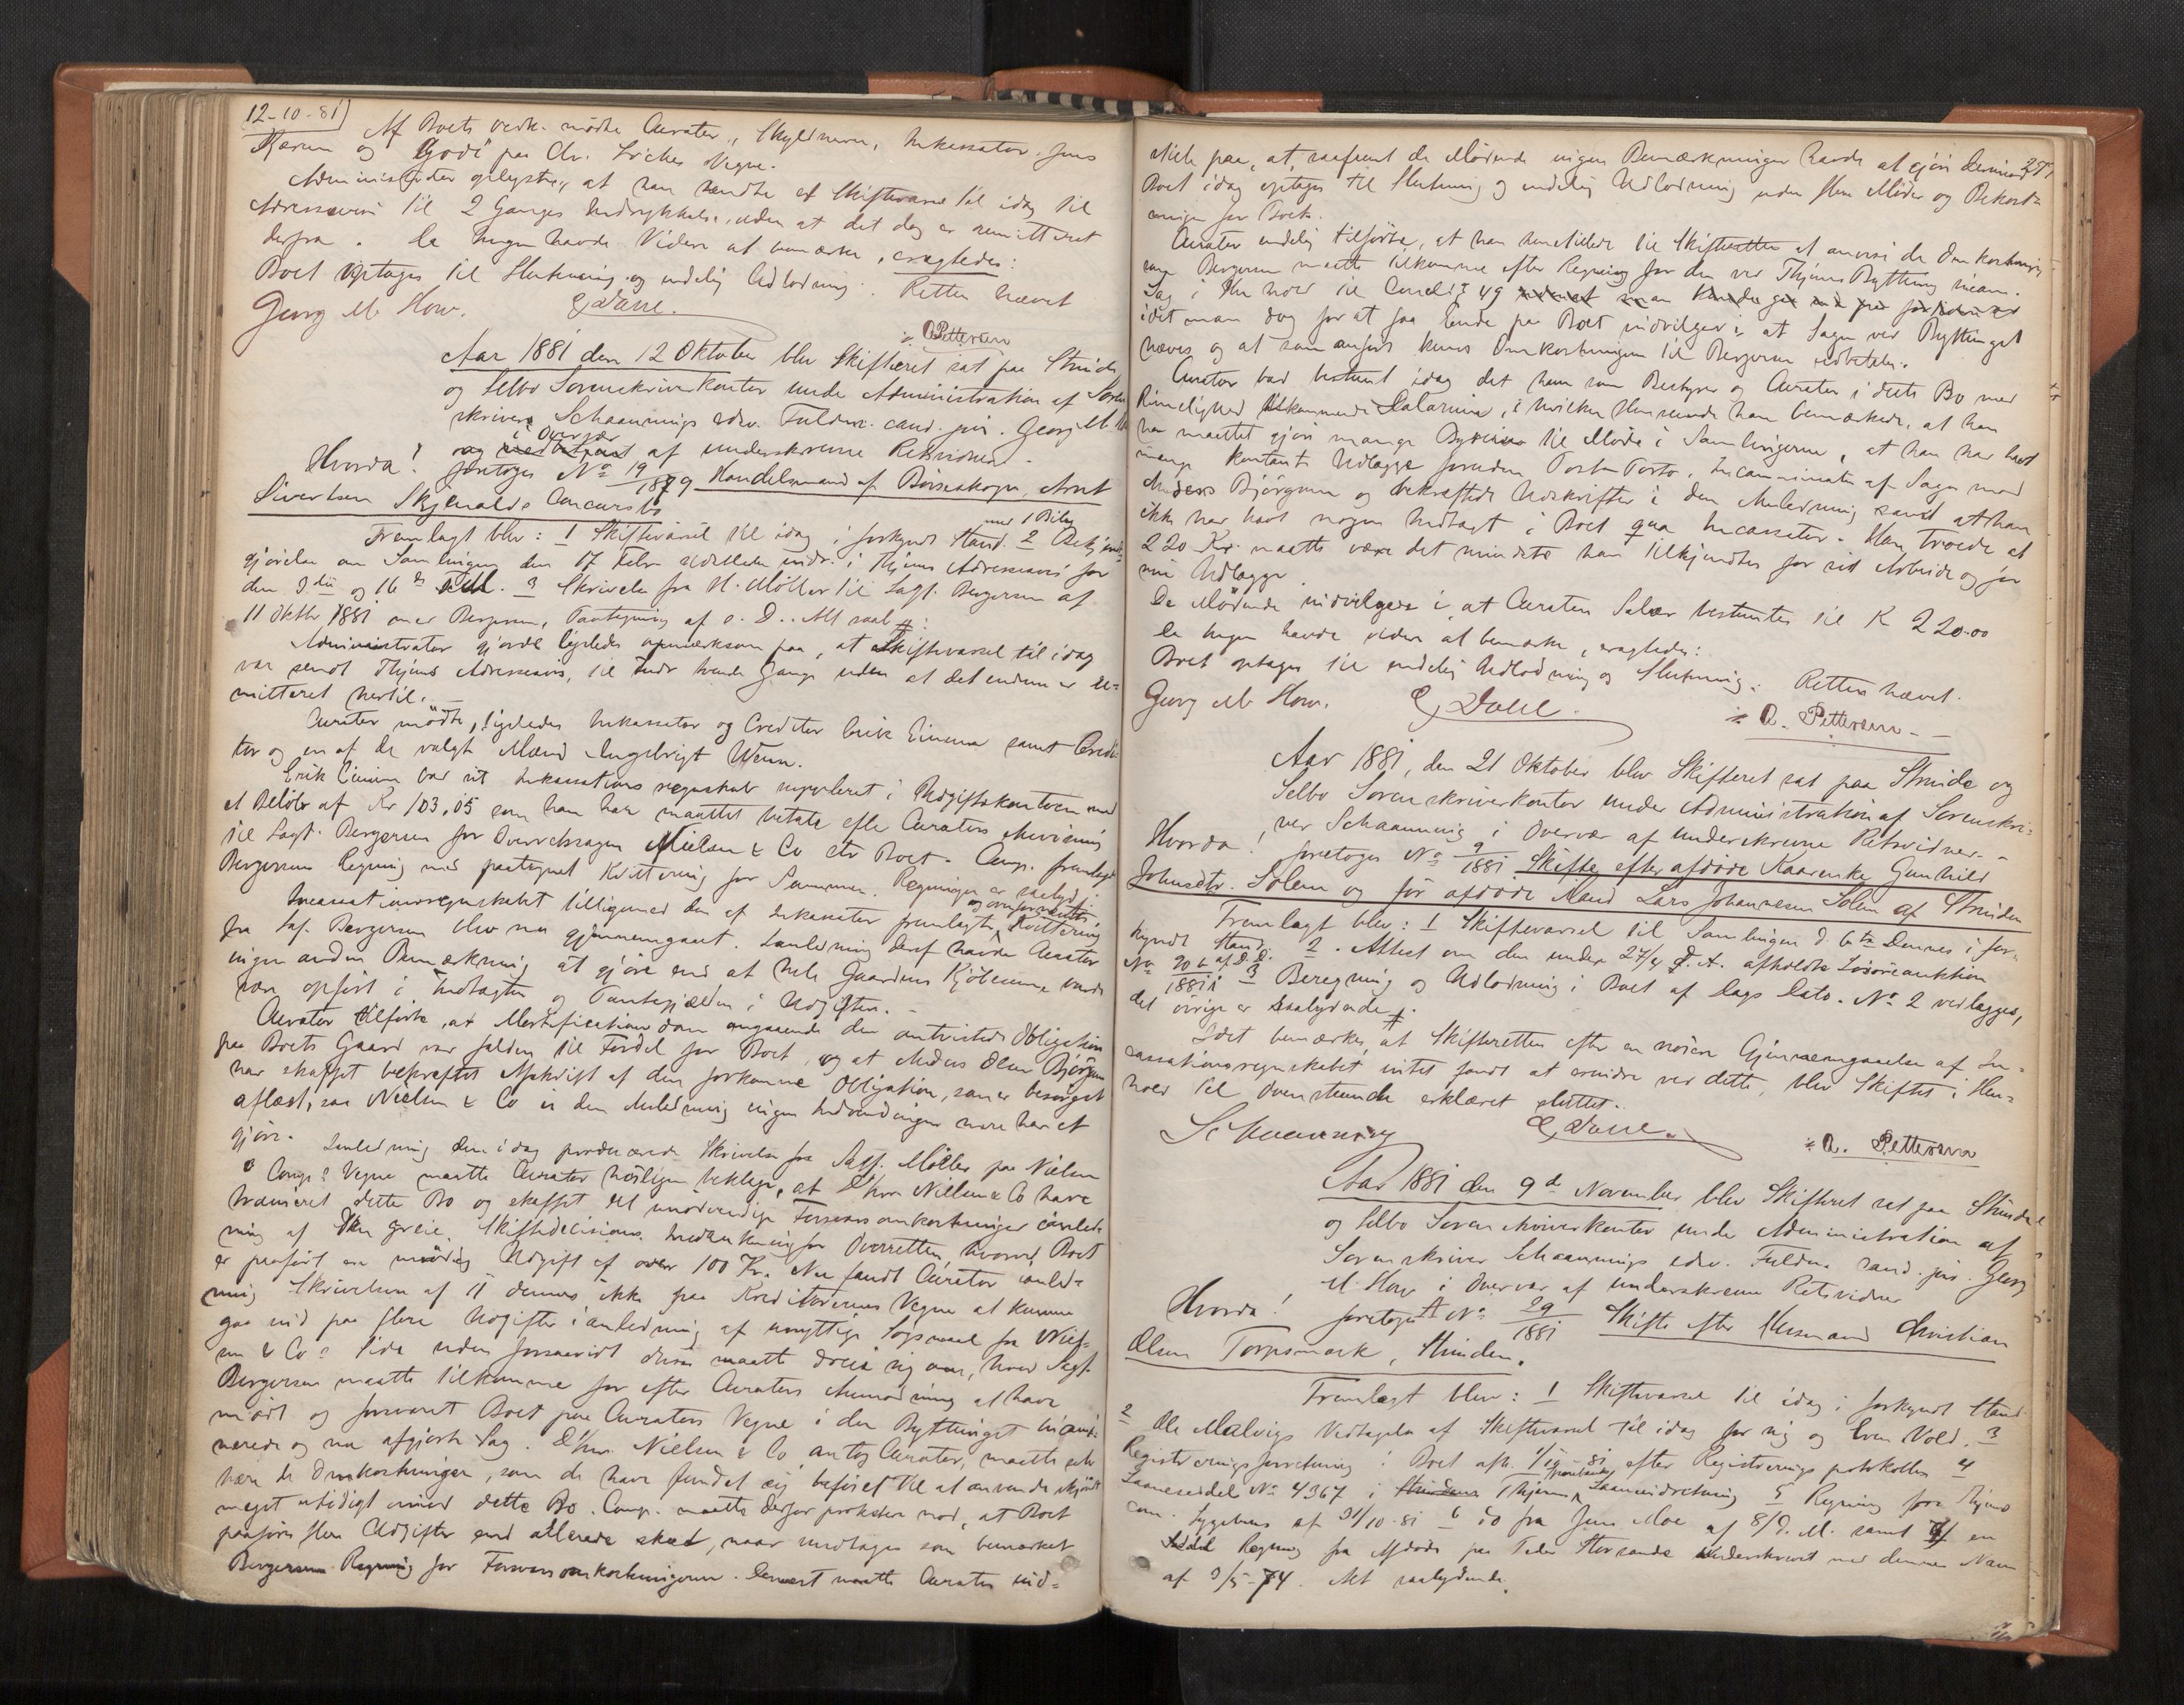 12-10-81)
Af Boets vedk. mødte Curator, Skyldneren, Inkassator Jens
Kjærem og Godi paa Chr. Loches Vegne.
Administrator oplyste, at han sendte et Skiftevarsel til idag til
Adresseavisen til 2 Ganges Indrykkelse, uden at det dog er remitteret
derfra. Da Ingen havde Videre at bemærke, eragtedes:
Boet optages til Slutning og endelig Udlodning. Retten hævet
Georg M. How. E Dahl.
A. Pettersen
Aar 1881 den 12 Oktober blev Skifteret sat paa Strinde
og Selbo Sorenskriverkontor under Administration af Soren
skriver Schaannings edsv. Fuldm. cand. jur. Georg M. How
i Overvær
af underskrevne Retsvidner.
Hvorda! foretoges No 19/1879 Handelsmand af Børseskogn, Arnt
Sivertsen Skjenalds Concursbo
Fremlagt blev: 1 Skiftevarsel til idag i forkyndt Stand. 2 med 1 Bilag Bekjendt-
gjørelse om Samlingen den 17 Febr. indr. i Thjems Adresseavis for
den 9de og 16de . 3 Skrivelse fra H. Møller til Sagf. Bergersen af
11 Oktbr 1881 med Bergersens Paategning af s. D. Alt saal #:
Administrator gjorde ligeledes opmærksom paa, at Skiftevarsel til idag
var sendt Thjems Adresseavis, til Indr. tvende Gange uden at det endnu er re-
mitteret hertil.
Curator mødte, ligeledes Inkassator og Creditor Erik Einum samt Credi-
tor og en af de valgte Mænd Ingebrigt Wenn.
Erik Einum bad sit Inkassations regnskab suppleret i Udgiftskontoen med
et Beløb af Kr 103,05 som han har maattet betale efter Curators Anvisning
til Sagf. Bergersen for Overretssagen Nielsen & Co ctr Boet. Comp. fremlagde
Bergersens Regning med paategnet Kvittering for Summen. Regningen er saalyd:
Incassationsregnskabet tilligemed den af Inkassator fremlagte og Kvittering
fra Sagf. Bergersen blev nu gjennemgaaet. I Anledning deraf havde Curator
ingen anden Bemærkning at gjøre end at hele Gaardens Kjøbesum burde
være opført i Indtægten og Pantegjælden i Udgiften.
Curator tilførte, at Mortifications dom angaaende den omtvistede Obligation
paa Boets Gaard var falden til Fordel for Boet, og at Anders Olsen Bjørgum
har skaffet bekræftet Afskrift af den forkomne Obligation, som er besørget
aflæst, saa Nielsen & Co i den Anledning ingen Indvendinger mere har at
gjøre.
I Anledning den idag producerede Skrivelse fra Sagf. Møller paa Nielsen
& Comps Vegne maatte Curator høiligen beklage, at D'Hrr Nielsen & Co have
traineret dette Bo og skaffet det unødvendige Forsvarsomkostninger i Anled-
ning af den greie Skiftedecisions Indankning for Overretten, hvorved Boet
er paaført en unødig Udgift af over 100 Kr. Nu fandt Curator i Anled-
ning Skrivelsen af 11 dennes ikke paa Kreditorernes Vegne at kunne
gaa ind paa flere Udgifter i Anledning af unyttige Søgsmaal fra Niel-
sen & Cos Side uden forsaavidt disse maatte dreie sig om, hvad Sagf.
Bergersen maatte tilkomme for efter Curators Anmodning at have
mødt og forsvaret Boet paa Curators Vegne i den Bythinget incami-
nerede og nu afgjorte Sag. D'Hrr. Nielsen & Co antog Curator, maatte selv
bære de Omkostninger, som de have fundet sig beføiet til at anvende
meget utidigt imod dette Bo. Comp. maatte derfor protestere mod, at Boet
paaføres flere Udgifter end allerede skeet, naar undtages som bemærket
Bergersens Regning for Forsvarsomkostningerne. Dernæst maatte Curator ind-
stille paa, at, saafremt de Mødende ingen Bemærkninger havde at gjøre derimod,
Boet idag optages til Slutning og endelig Udlodning uden flere Møder og Bekost-
ninger for Boet.
Curator endelig tilførte, at han henstillede til Skifteretten at anvise de Omkostninger
som Bergersen maatte tilkomme efter Regning for den ved Thjems Bything incam.
Sag i Henhold til Concl. § 49
idet man dog for at faa Ende paa Boet indvilger i, at Sagen ved Bythinget
hæves og at som anført kuns Omkostningen til Bergersen udbetales.
Curator bad bestemt idag det ham som Bestyrer og Curator i dette Bo med
Rimelighed tilkommende Salarium, i hvilken Henseende han bemærkede, at han
har maattet gjøre mange Byreiser til Møde i Samlingerne, at han har havt
mange kontante Udlægge foruden Post-Porto, Incaminatn af Sagen mod
Anders Bjørgum og bekræftede Udskrifter i den Anledning samt at han
ikke har havt nogen Indtægt i Boet qua Incassator. Han troede at
220 Kr. maatte være det mindste han tilkjendtes for sit Arbeide og for
sine Udlægge.
De Mødende indvilgede i at Curators Salær bestemtes til K 220.00
Da Ingen havde videre at bemærke, eragtedes:
Boet optages til endelig Udlodning og Slutning. Retten hævet.
Georg M. How. E Dahl.
A. Pettersen
Aar 1881, den 21 Oktober blev Skifteret sat paa Strinde og
Selbo Sorenskriverkontor under Administration af Sorenskri-
ver Schaanning i Overvær af underskrevne Retsvidner.
Hvorda! foretoges No 9/1881 Skifte efter afdøde Kaarenke Gunhild
Johnsdtr. Solem og før afdøde Mand Lars Johannesen Solem af Strinden
Fremlagt blev: 1 Skiftevarsel til Samlingen d. 6te Dennes i for-
kyndt Stand. 2. Attest om den under 27/4 d. A. afholdte Løsøreauktion
No 20 af D. D. 1881 3 Beregning og Udlodning i Boet af Dags Dato. No 2 vedlægges,
det øvrige er saalydende #:
Idet bemærkes, at Skifteretten efter en nøiere Gjennemgaaelse af In-
cassationsregnskabet intet fandt at erindre ved dette, blev Skiftet i Hen-
hold til Ovenstaaende erklæret sluttet.
Schaanning E Dahl. A. Pettersen
Aar 1881 den 9de November blev Skifteret sat paa Strinde
og Selbo Sorenskriverkontor under Administration af
Sorenskriver Schaannings edsv. Fuldm. cand. jur. Georg
M. How i Overvær af underskrevne Retsvidner
Hvorda! foretoges A No 29/1881 Skifte efter Husmand Christian
Olsen Torpsmark, Strinden.
Fremlagt blev: 1 Skiftevarsel til idag i forkyndt Stand
2 Ole Malvigs Vedtagelse af Skiftevarsel til idag for sig og Even Vold. 3
Registreringsforretning i Boet afh. 1/10-81 efter Registrerings protokollen 4
Laaneseddel No 4367 i Thjems Laaneindretning 5 Regning fra Thjems
com. Sygehus af 31/10-81 6 do fra Jens Moe af 8/d. M. samt 7 en
Regning fra Afdøde paa Peder Storsande underskrevet med dennes Navn
af 9/5-74. Alt saalydende.